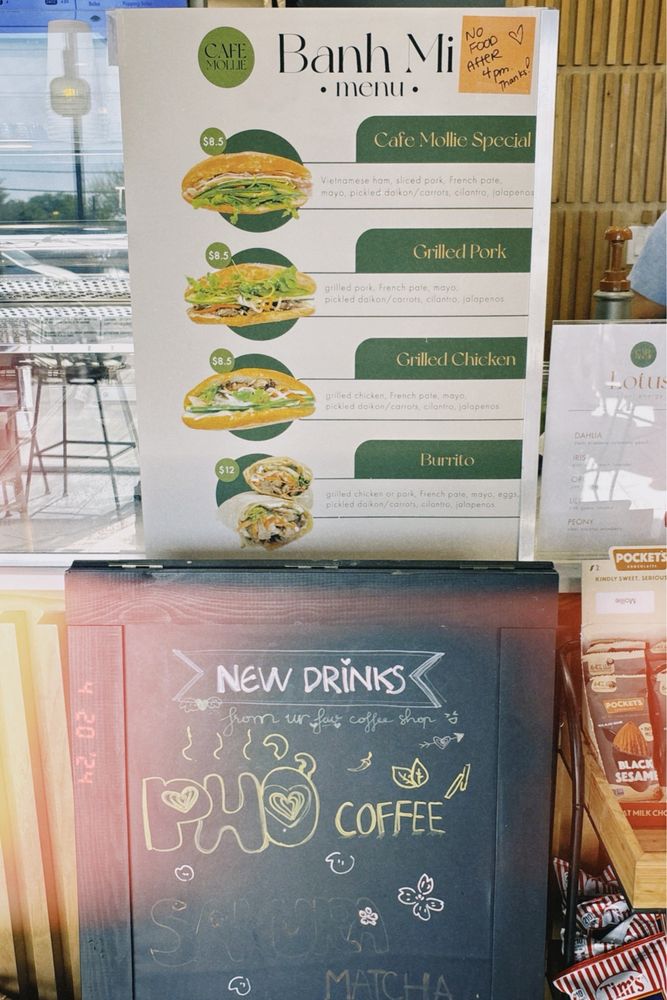 CAFE
MOLLIE
Banh Mi
• menu •
NO
FOOD
AFTER
4pm.
Thanks!
$8.5
Cafe Mollie Special
Vietnamese ham, sliced pork, French pate,
mayo, pickled daikon/carrots, cilantro, jalapenos
$8.5
Grilled Pork
grilled pork, French pate, mayo,
pickled daikon/carrots, cilantro, jalapenos
$8.5
Grilled Chicken
grilled chicken, French pate, mayo,
pickled daikon/carrots, cilantro, jalapenos
$12
Burrito
grilled chicken or pork, French pate, mayo, eggs,
pickled daikon/carrots, cilantro, jalapenos
Lotus
DAHLIA
IRIS
PEONY
NEW DRINKS
from ur fav coffee shop
PHO
COFFEE
SAKURA
MATCHA
4 20 '24
POCKET'S
CHOCOLATES
KINDLY SWEET, SERIOUS
Mollie
POCKET'S
BLACK
SESAME
AT MILK CHO
Tim's